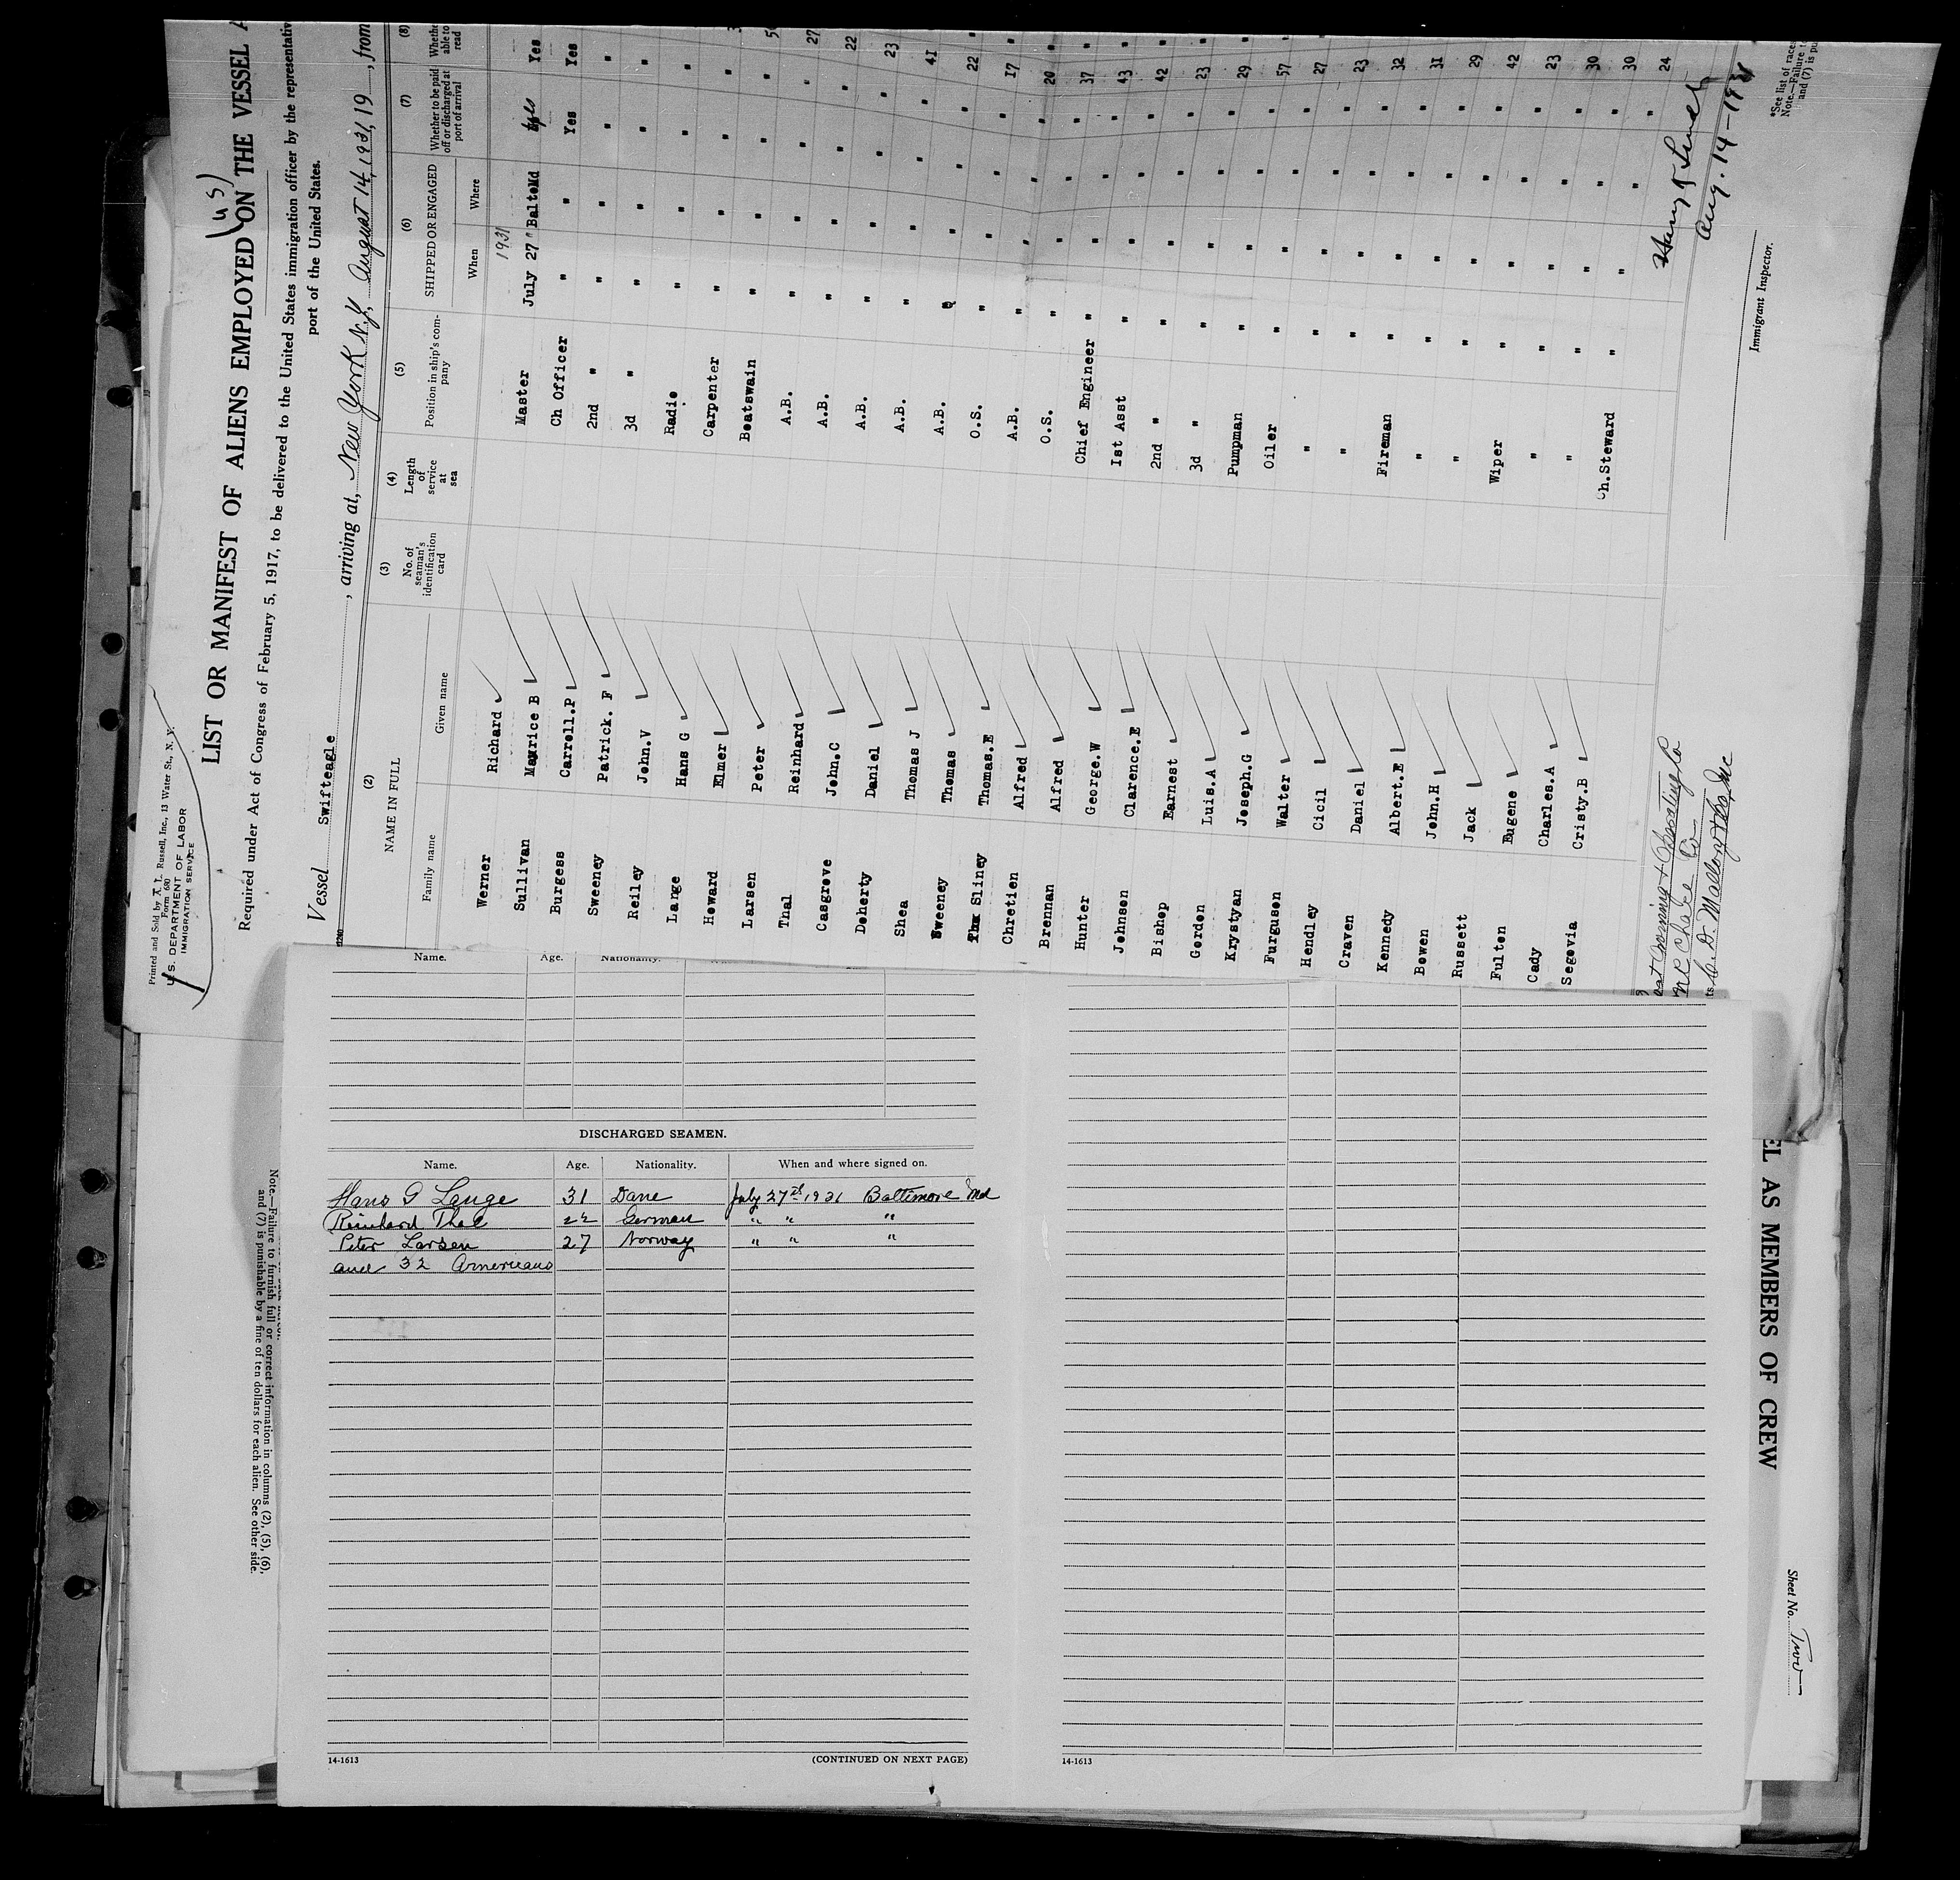 Printed and Sold by A. L. Russell, Inc., 13 Water St., N. Y.
Form 680
U.S. DEPARTMENT OF LABOR
IMMIGRATION SERVICE
(US)
LIST OR MANIFEST OF ALIENS EMPLOYED ON THE VESSEL A
Required under Act of Congress of February 5, 1917, to be delivered to the United States immigration officer by the representativ
port of the United States.
Vessel Swifteagle, arriving at, New York N.Y., August 14, 1931, 19 , from
(2) (3) (4) (5) (6) (7) (8)
NAME IN FULL No. of seaman's identification card Length of service at sea Position in ship's company SHIPPED OR ENGAGED Whether to be paid off or discharged at port of arrival Whethe able to read
Family name Given name When Where
1931
Werner Richard Master July 27 " Balto Md Yes Yes
Sullivan Maurice B Ch Officer " " Yes Yes
Burgess Carroll.P 2nd " " " " "
Sweeney Patrick. F 3d " " " " "
Reiley John.V Radio " " " "
Lange Hans G Carpenter " " " "
Howard Elmer Boatswain " " " "
Larsen Peter A.B. " " " " 27
Thal Reinhard A.B. " " " " 22
Casgrove John.C A.B. " " " " 23
Doherty Daniel A.B. " " " " 41
Shea Thomas J A.B. " " " " 22
Sweeney Thomas O.S. " " " " 17
Sliney Thomas.E A.B. " " " " 20
Chretien Alfred O.S. " " " " 37
Brennan Alfred
Hunter George.W Chief Engineer " " " "
Johnson Clarence.E 1st Asst " " " 43
Bishop Earnest 2nd " " " " 42
Gordon Luis.A 3d " " " " 23
Krystyan Joseph.G Pumpman " " " 29
Furguson Walter Oiler " " " 57
Hendley Cicil " " " " 27
Craven Daniel " " " " 23
Kennedy Albert.E Fireman " " " 32
Bowen John.H " " " " 31
Russett Jack " " " " 29
Fulton Eugene Wiper " " " 42
Cady Charles.A " " " " 23
Segovia Cristy.B " " " " 30
h.Steward " " " 30
24
Aug. 14-1931
Immigrant Inspector.
C. D. Mallory & Co, Inc
*See list of races
Note.—Failure t
and (7) is pu
Name. Age. Nationality.
DISCHARGED SEAMEN.
Name. Age. Nationality. When and where signed on.
Hans G Lange 31 Dane July 27th 1931 Baltimore Md
Reinhard Thal 22 German " " "
Peter Larsen 27 Norway " " "
and 32 Americans
14-1613 (CONTINUED ON NEXT PAGE)
14-1613
Note.—Failure to furnish full or correct information in columns (2), (5), (6),
and (7) is punishable by a fine of ten dollars for each alien. See other side.
EL AS MEMBERS OF CREW
Sheet No. Two